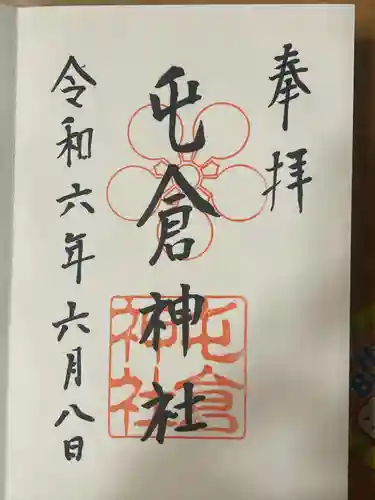 奉拝
屯倉神社
屯倉
神社
令和六年六月八日